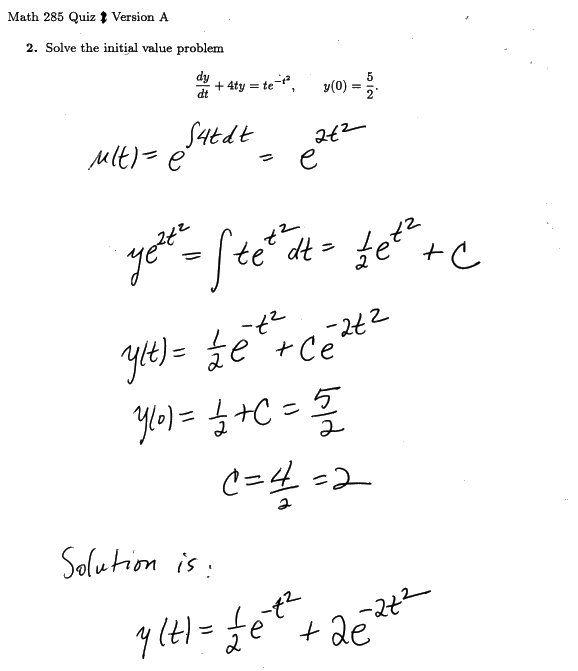 Math 285 Quiz 2 Version A
2. Solve the initial value problem
dy/dt + 4ty = te^{-t²}, y(0) = 5/2.
μ(t) = e^{∫4tdt} = e^{2t²}
ye^{2t²} = ∫te^{t²}dt = 1/2 e^{t²} + C
y(t) = 1/2 e^{-t²} + Ce^{-2t²}
y(0) = 1/2 + C = 5/2
C = 4/2 = 2
Solution is:
y(t) = 1/2 e^{-t²} + 2e^{-2t²}